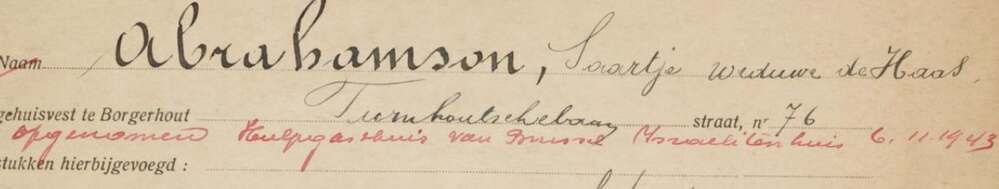 Naam Abrahamson, Saartje weduwe de Haas
gehuisvest te Borgerhout Turnhoutschebaan straat, nr 76
opgenomen Hulpgasthuis van Brussel Israelitenhuis 6.11.1943
stukken hierbijgevoegd :